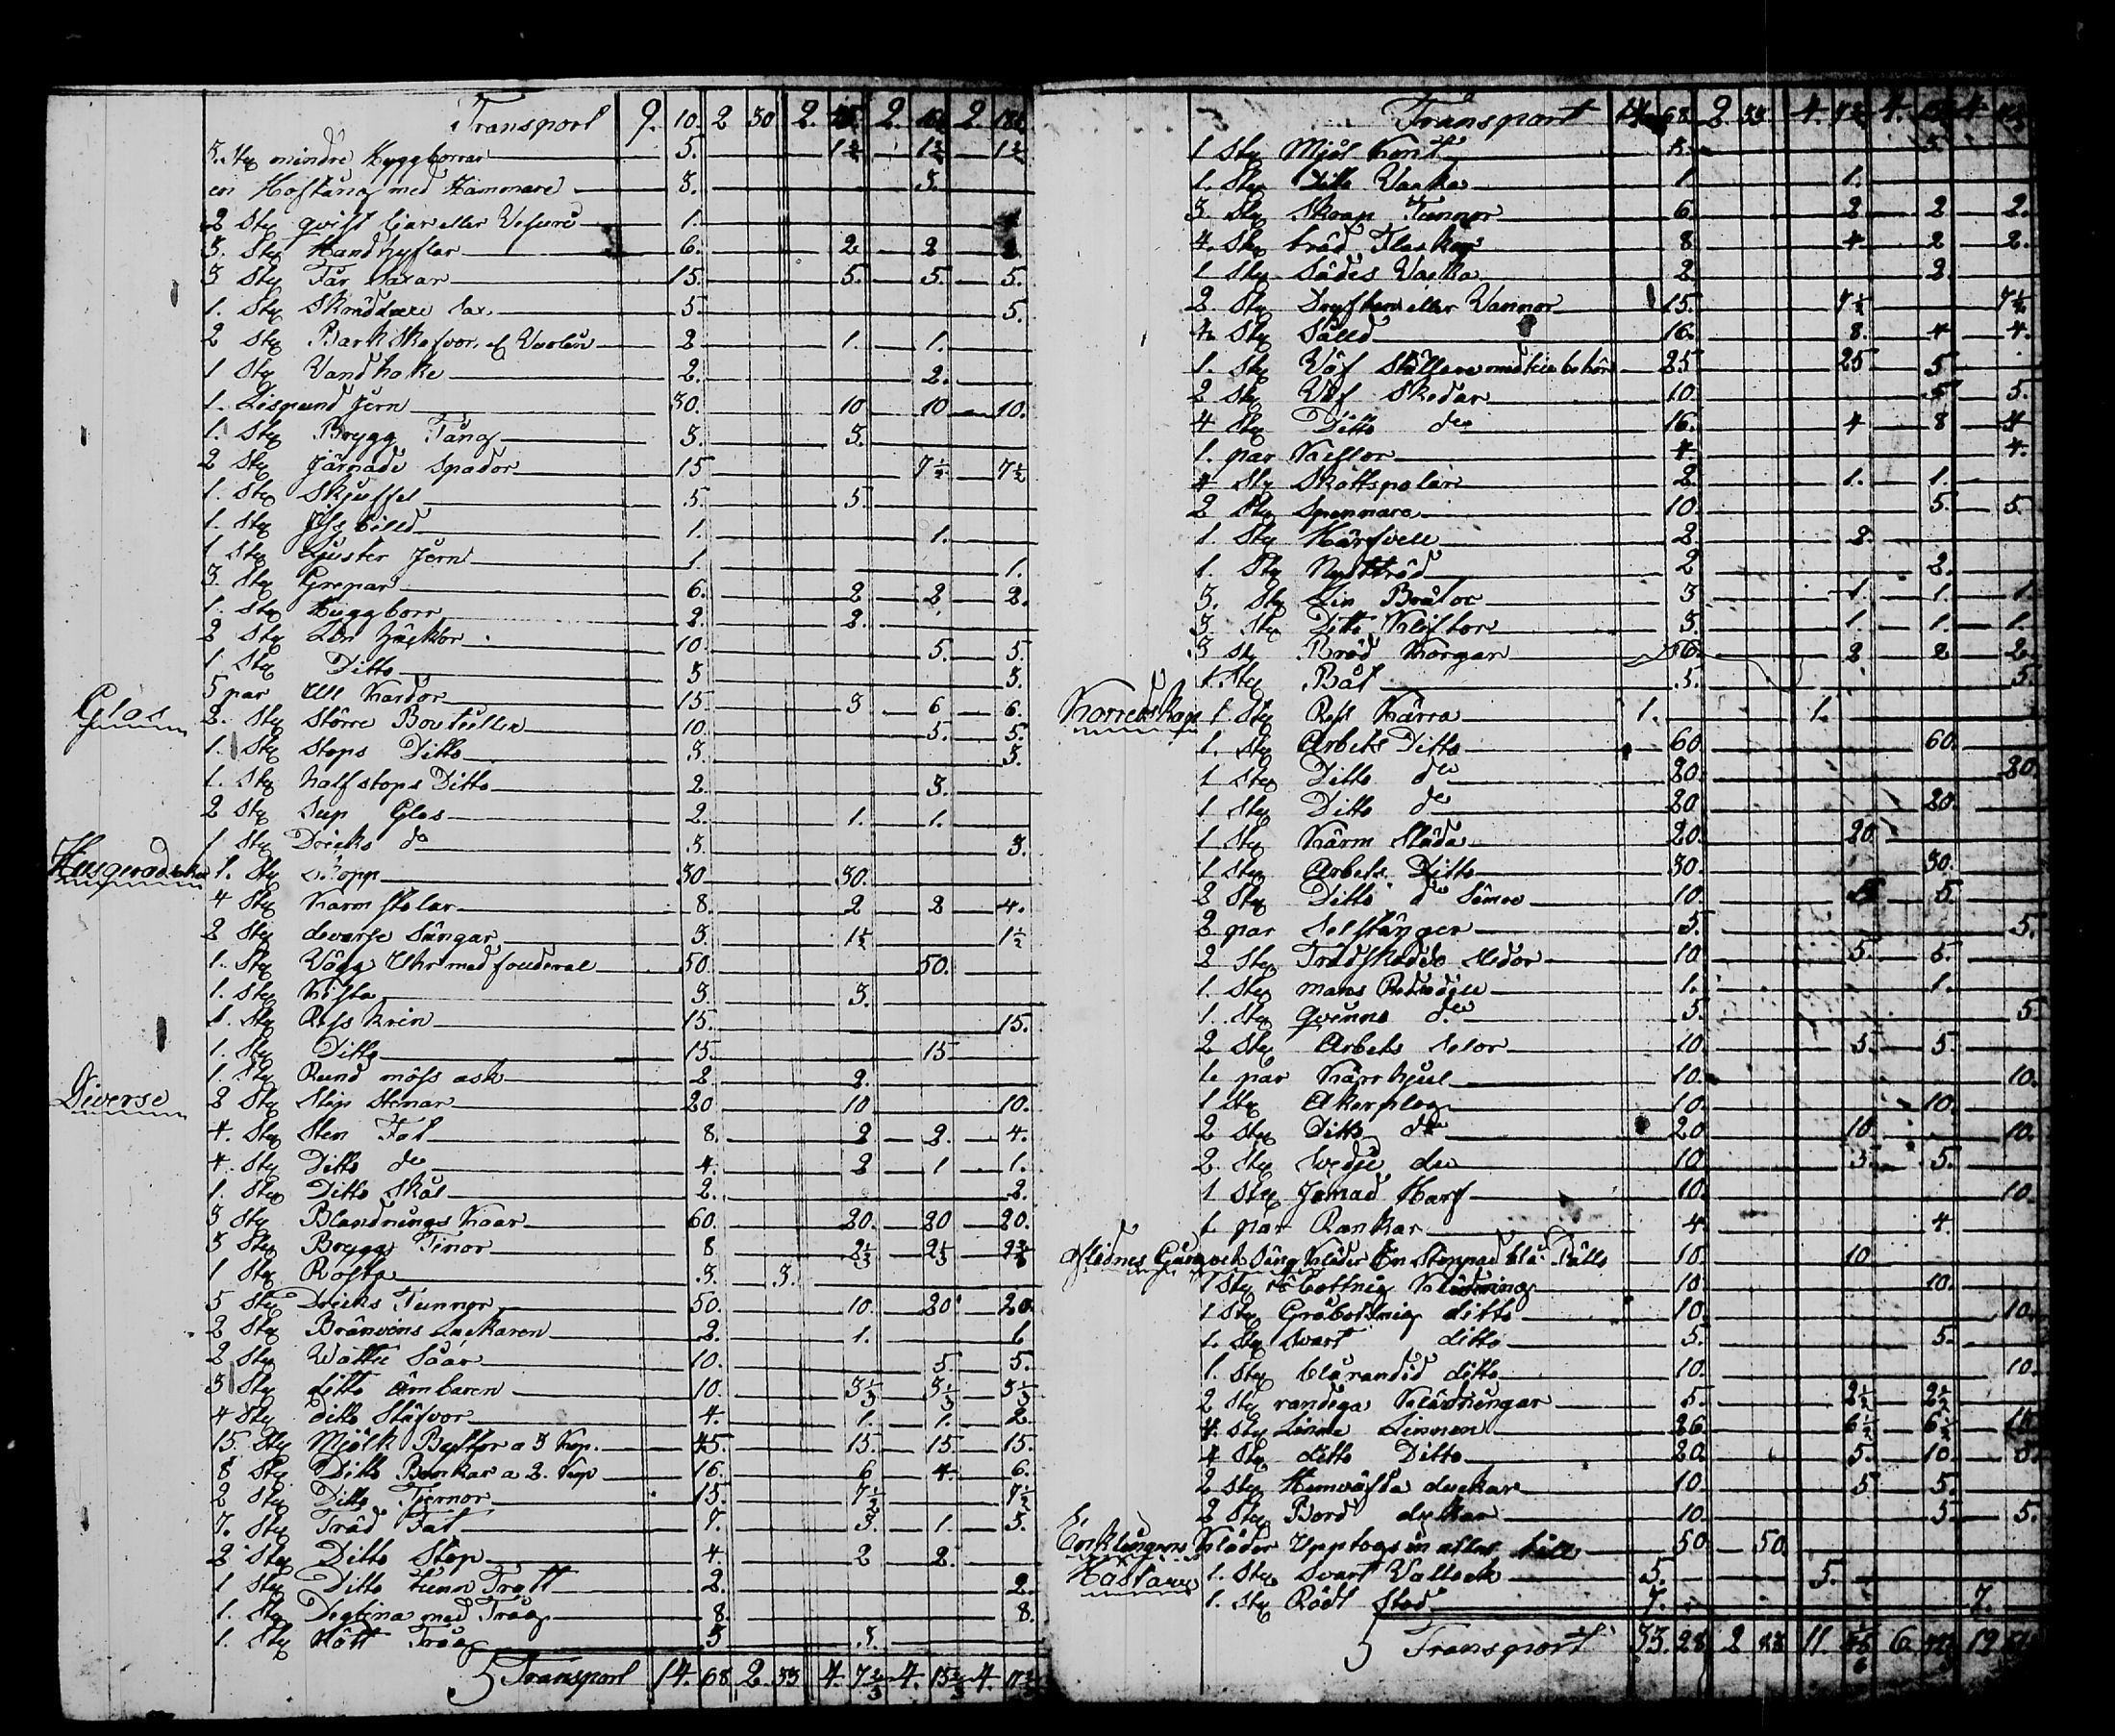 Transport 9. 10. 2 30 2. 2. 2.
3. Stq mindre Hyggborrar 5. 1 2/3 1 2/3 1 2/3
en Hoftång med Hammare 3. 3.
2 Stq qvist liar eller 1.
3. Stq Handhyflar 6. 2 2
3 Stq Får Saxar 15. 5. 5. 5.
1. Stq Skräddare Sax 5. 5.
2 Stq Bark Skafvor 2 1. 1.
1 Stq Vandhake 2. 2.
1. Lispund Jern 30. 10 10 10.
1. Stq Brygg Tång 3. 3.
2 Stq Järnade Spador 15 7 1/2 7 1/2
1. Stq Skyffel 5 5.
1. Stq Jssbilld 1. 1.
1 Stq Ljuster Jern 1. 1.
3 Stq Grepar 6. 2 2 2.
1. Stq Huggborr 2. 2
2 Stq 10. 5. 5.
1 Stq Ditto 3 3.
5 par Ull Kardor 15. 3 6 6.
Glas
2. Stq Större Bouteiller 10. 5. 5.
1. Stq Stops Ditto 3. 3.
1. Stq halfstops Ditto 2. 3.
2 Stq Sup Glas 2. 1. 1.
1 Stq Dricks do 3. 3.
Husgerådsaker
1. Stq 30 30.
4 Stq Karm stolar 8. 2 2 4.
2 Stq deverse Sängar 3. 1 1/2 1 1/2
1. Stq Vägg Uhr med fouderal 50. 50.
1. Stq Kista 3. 3.
1. Stq Ress krin 15. 15.
1. Stq Ditto 15. 15
1. Stq Rund möss ask 2. 2.
Diverse
2 Stq Slip Stenar 20 10 10.
4. Stq Sten Fat 8. 2 2. 4.
4. Stq Ditto do 4. 2 1 1.
1. Stq Ditto Skål 2. 2.
3 Stq Blandnings Kaar 60. 20. 20 20.
3 Stq Brygg Tinor 8
1 Stq Rosta 3. 3.
5 Stq Dricks Tunnor 50. 10. 20 20.
2 Stq Bränvins ankaren 2. 1. 1
2 Stq Watte Såår 10. 5. 5.
3 Stq ditto ämbaren 10. 3 1/3 3 1/3 3 1/3
4 Stq ditto Stäfvor 4. 1. 1. 2
15. Stq Mjölk Byttor a 3 Kop. 45. 15. 15. 15.
8 Stq Ditto Bunkar a 2. Kop 16. 6 4. 6.
2 Stq Ditto Tjernor 15. 7 1/2 7 1/2
7. Stq Träd Fat 7. 3. 1. 3.
2 Stq Ditto Stop 4. 2 2.
1 Stq Ditto tunn Tratt 2. 2.
1. Stq Degtina med Tråg 8. 8.
1. Stq Kött Tråg 3 3.
Transport 14. 68 2. 33 4. 7 2/3 4. 15 2/3 4. 11 2/3

Transport 14 68 2. 33. 4. 4. 4.
1 Stq Mjöl Kont 5. 5.
1. Stq Ditto Vacka 1. 1.
3. Stq Skrap Tunnor 6. 2 2 2.
4. Stq träd Flaskor 8 4 2 2.
1 Stq Sädes Vacka 2. 2.
2 Stq Dryfter eller Vannor 15. 7 1/2 7 1/2
4 Stq Sålld 16. 8. 4 4.
1. Stq Väf Ställare med tillbehör 25 25 5
2 Stq Väf Skedar 10. 5 5.
4 Stq Ditto do 16. 4 8 4
1. par Kafflor 4. 4.
4 Stq Skottspolar 2. 1. 1.
2 Stq Spennare 10. 5. 5.
1. Stq Härfvell 2. 2
1. Stq Nysttröd 2 2.
3. Stq Lin Bråtor 3 1. 1. 1
3 Stq Ditto Klyftor 3. 1. 1. 1.
3 Stq Bröd Korgar 6. 2 2 2.
1. Stq Båt 5. 5.
Körredskap
1 Stq Ress Kärra 1. 1.
1. Stq Arbets Ditto 60. 60.
1 Stq Ditto do 20. 20.
1 Stq Ditto do 20 20.
1 Stq Karm Släda 20. 20
1 Stq Arbets Ditto 30. 30.
2 Stq Ditto do Sämre 10. 5 5.
2 par Seltstänger 5. 5.
2 Stq Trädskodde Medor 10 5. 5.
1. Stq mans 1. 1.
1. Stq Qvinns do 5. 5.
2 Stq Arbets Selor 10. 5. 5.
1. par Kärrhjul 10. 10.
1 Stq Åkerplog 10. 10.
2 Stq Ditto do 20 10 10.
2. Stq Svedje do 10 5. 5.
1 Stq Jernad Harf 10. 10.
1 par Rankar 4. 4.
Aflednes Gång och Säng Kläder En Stoppad blå Fäll 10. 10
1 Stq Klädning 10. 10.
1 Stq Gråbottnig ditto 10. 10.
1. Stq Svart ditto 5. 5.
1. Stq blårandid ditto 10. 10.
2 Stq randiga Klädningar 5. 2 1/2 2 1/2
4. Stq Linne Linnen 26. 6 1/2 6 1/2
4 Stq ditto Ditto 20. 5. 10. 5.
2 Stq Hemväfda dukar 10. 5 5.
2 Stq Bord dukar 10. 5. 5.
Enklingens Kläder Upptogs en att till 50. 50.
Hästar 1. Stq Svart Vallack 5. 5.
1. Stq Rödt Stod 7. 7.
Transport 33. 28 2 83 11. 6. 12